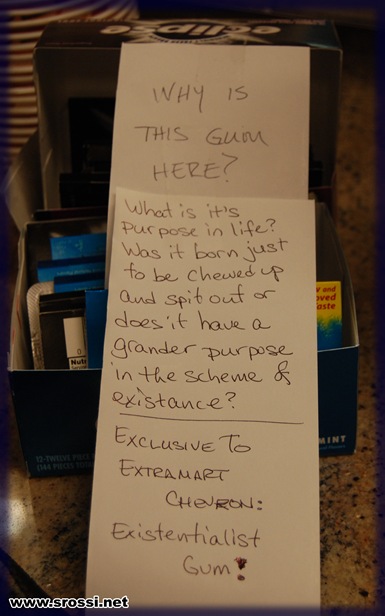 eclipse
WHY IS
THIS GUM
HERE?
What is it's
purpose in life?
Was it born just
to be chewed up
and spit out or
does it have a
grander purpose
in the scheme of
existance?
EXCLUSIVE TO
EXTRAMART
CHEVRON:
Existentialist
Gum!
MINT
www.srossi.net